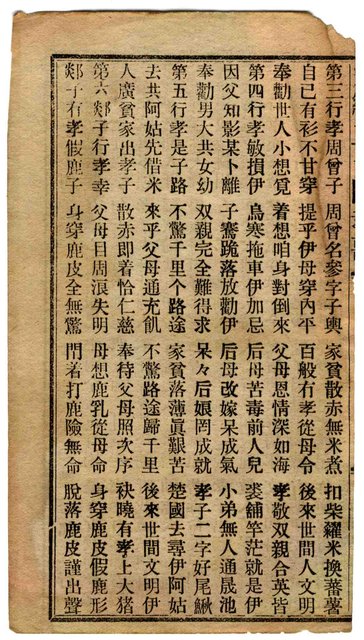 第三行孝周曾子 周曾名參字子輿 家貧散赤無米煮 扣柴糴米換蕃薯
自已有衫不甘穿 提乎伊母穿內平 百般有孝從母令 後來世間人文明
奉勸世人小想覓 着想咱身對倒來 父母恩情深如海 孝敬双親合英皆
第四行孝敏損伊 烏寒拖車伊加忌 后母苦毒前人兒 裘舖竿茫就是伊
因父知影某卜離 子騫跪落放勸伊 后母改嫁呆成氣 小弟無人通晟池
奉勸男大共女幼 双親完全難得求 呆々后娘罔成就 孝子二字好尾鰍
第五行孝是子路 不驚千里个路途 家貧落薄真艱苦 楚國去尋伊阿姑
去共阿姑先借米 來乎父母通充飢 不驚路途歸千里 後來世間文明伊
人廣貧家出孝子 散赤即着恰仁慈 奉待父母照次序 袂曉有孝上大猪
第六郯子行孝幸 父母目周浪失明 母想鹿乳從母命 身穿鹿皮假鹿形
郯子有孝假鹿子 身穿鹿皮全無驚 門着打鹿險無命 脫落鹿皮謹出聲